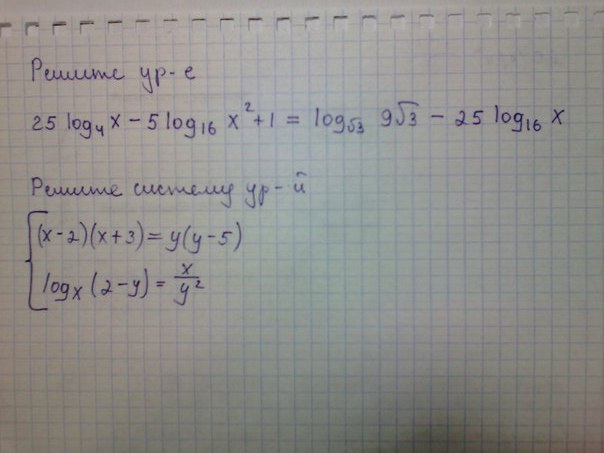 Решите ур-е
25 log₄ x − 5 log₁₆ x² + 1 = log_√3 9√3 − 25 log₁₆ x
Решите систему ур-й
(x−2)(x+3) = y(y−5)
logₓ (2−y) = x/y²